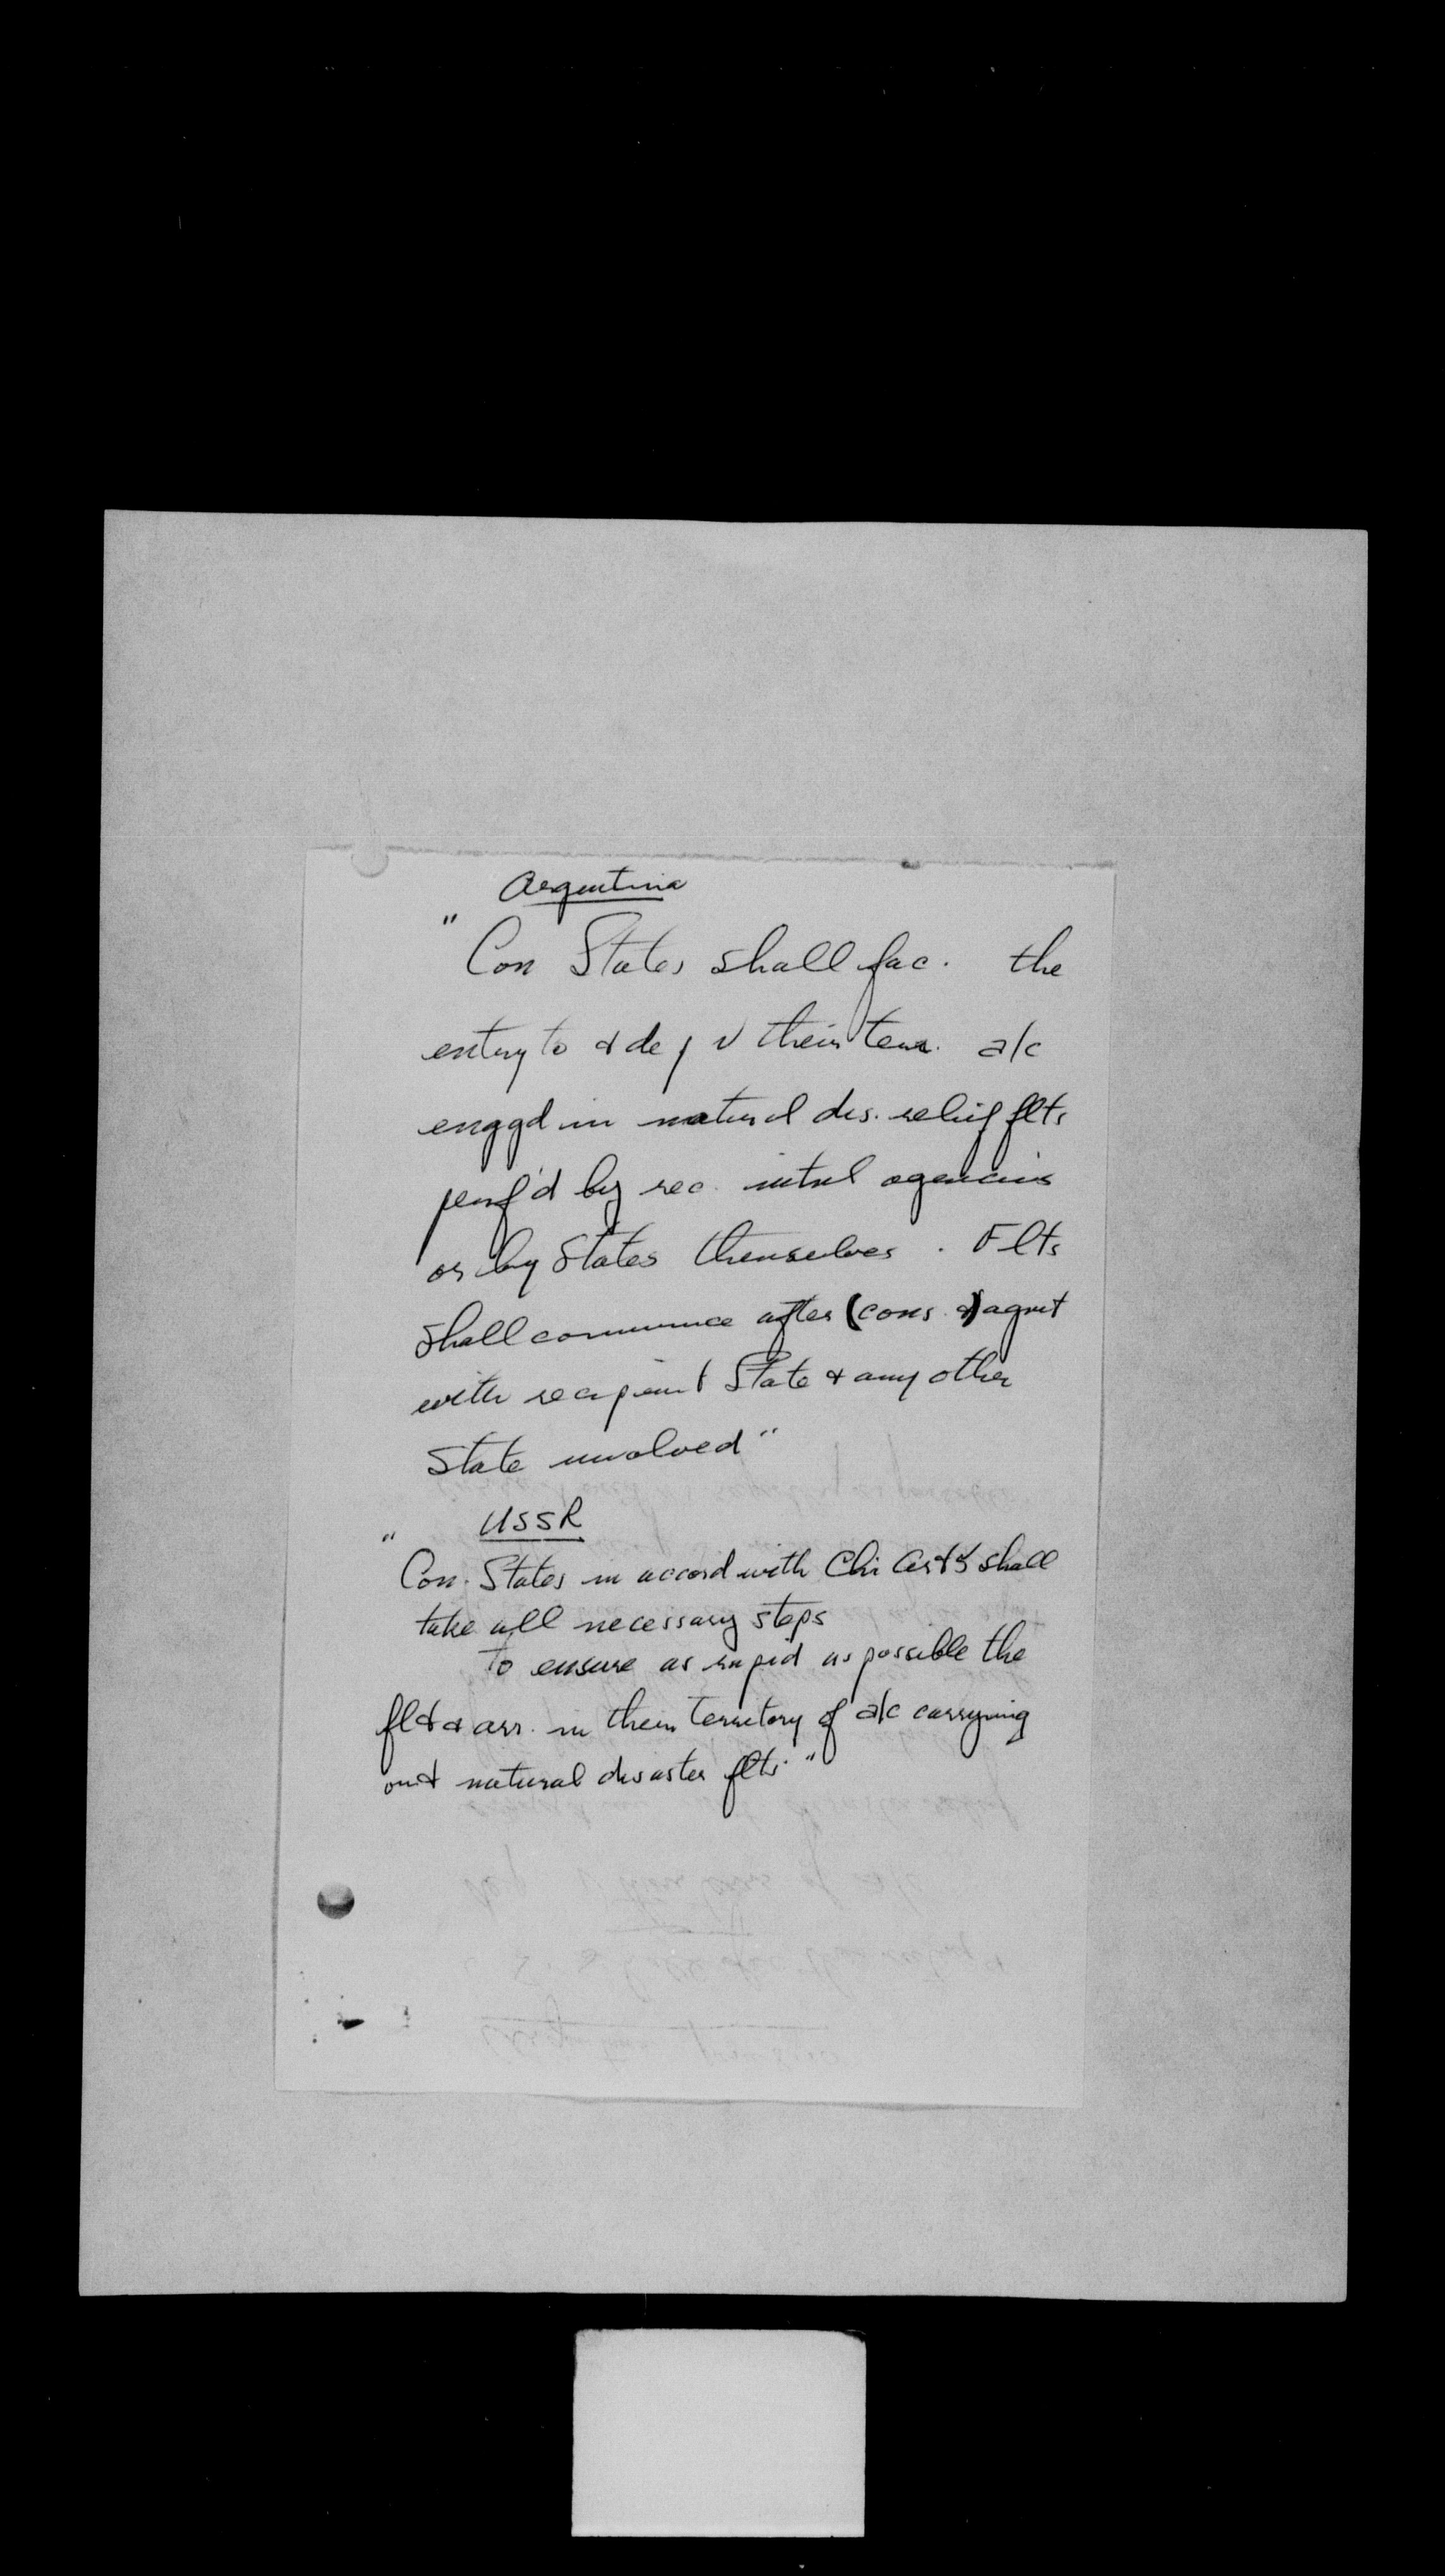 Argentina
"Con States shall fac. the
entry to & dep v their terr. a/c
enggd in natural dis. relief flts
perf'd by rec. intnl agencies
or by States themselves. Flts
shall commence after (cons. &) agmt
with recipient State & any other
State involved"
USSR
"Con. States in accord with Chi Art 5 shall
take all necessary steps
to ensure as rapid as possible the
flt & arr. in their territory of a/c carrying
out natural disaster flts."